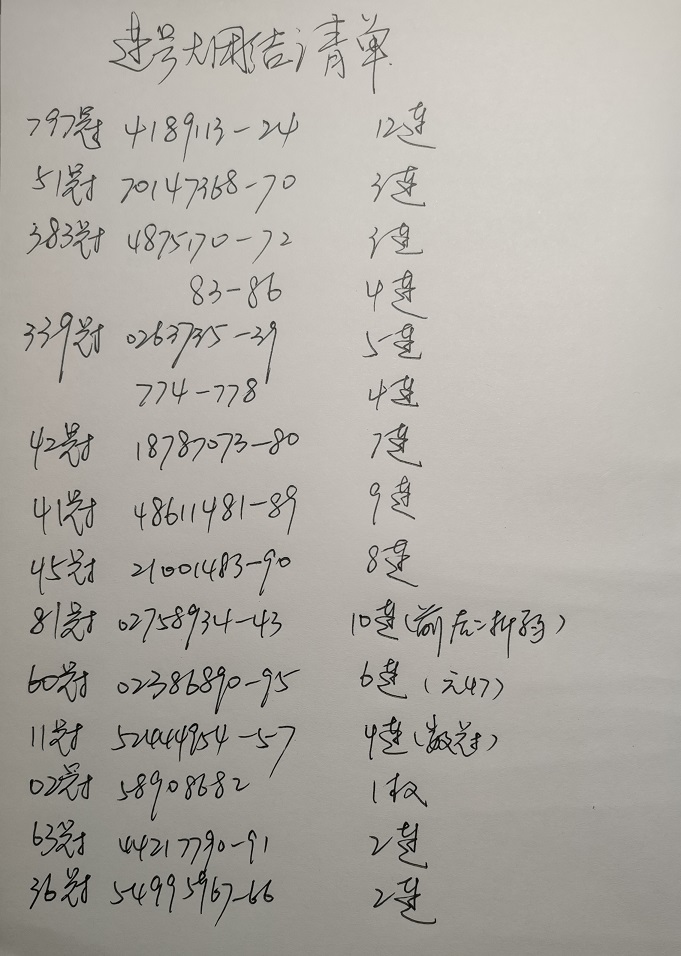 连号大团结清单
797冠 4189113-24 12连
51冠 70147368-70 3连
383冠 4875170-72 3连
83-86 4连
339冠 0263735-39 5连
774-778 4连
42冠 18787073-80 7连
41冠 48611481-89 9连
45冠 21001483-90 8连
81冠 02758934-43 10连(前后二折弱)
60冠 02386890-95 6连(无47)
11冠 52444954-57 4连(数冠)
02冠 58908682 1枚
63冠 44217790-91 2连
36冠 54995967-66 2连